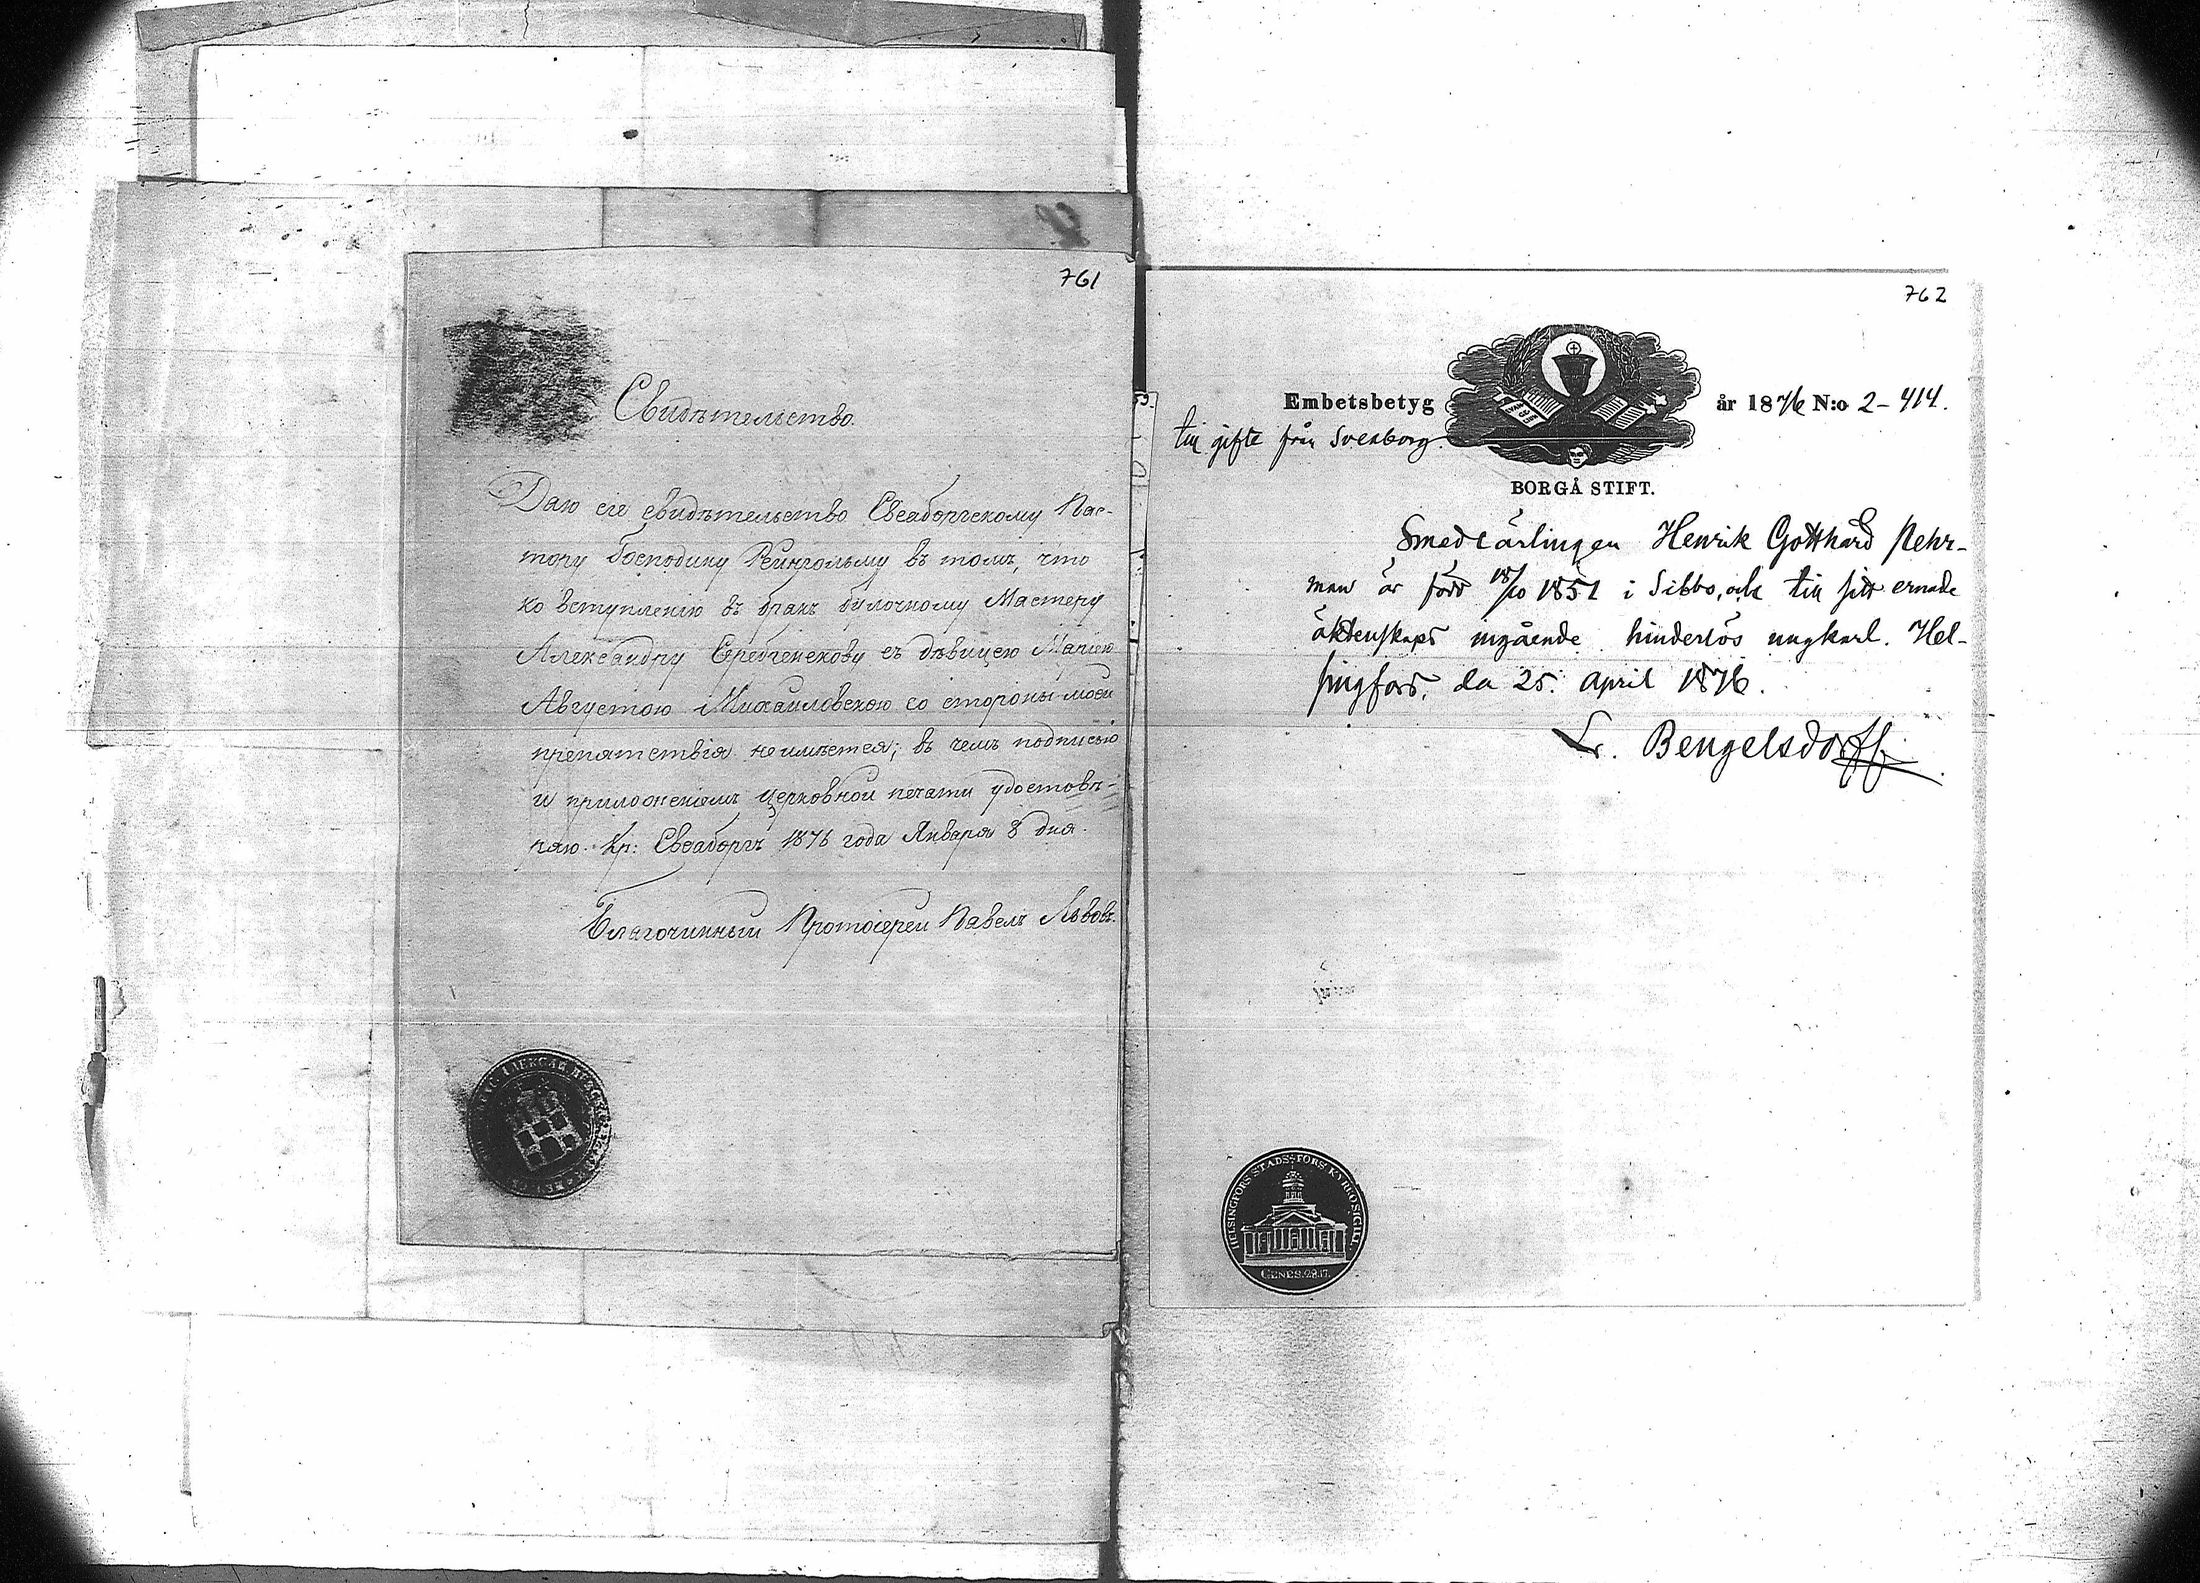 761
Свидѣтельство.
Даю сіе свидѣтельство Свеаборгскому Пас-
тору Господину Рейнгольму въ томъ, что
ко вступленію въ бракъ булочному Мастеру
Александру Серебренекову съ дѣвицею Маріею
Августою Михайловскою со стороны моей
препятствія неимѣется; въ чемъ подписью
и приложеніемъ церковной печати удостовѣ-
ряю. Кр: Свеаборгъ 1876 года Января 8 дня.
Благочинный Протоіерей Павелъ Львовъ.
762
Embetsbetyg år 1876 N:o 2-414.
till gifte från Sveaborg
BORGÅ STIFT.
Smedlärlingen Henrik Gotthard Pehr-
man är född 18/10 1851 i Sibbo, och till sitt ernade
äktenskaps ingående hinderlös ungkarl. Hel-
singfors, den 25. april 1876.
Bengelsdorff
HELSINGFORS STADS-FÖRS. KYRKOSIGILL.
GENES. 28. 17.